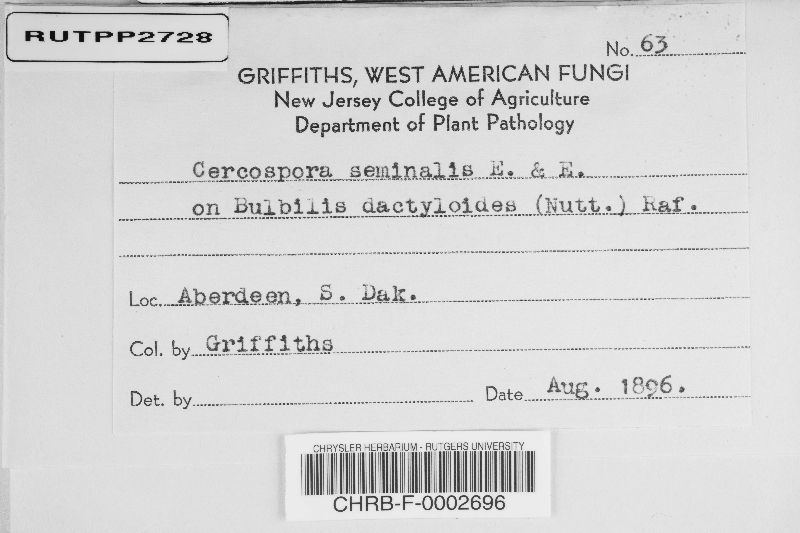 RUTPP2728
No. 63
GRIFFITHS, WEST AMERICAN FUNGI
New Jersey College of Agriculture
Department of Plant Pathology
Cercospora seminalis E. & E.
on Bulbilis dactyloides (Nutt.) Raf.
Loc. Aberdeen, S. Dak.
Col. by Griffiths
Det. by
Date Aug. 1896.
CHRYSLER HERBARIUM - RUTGERS UNIVERSITY
CHRB-F-0002696